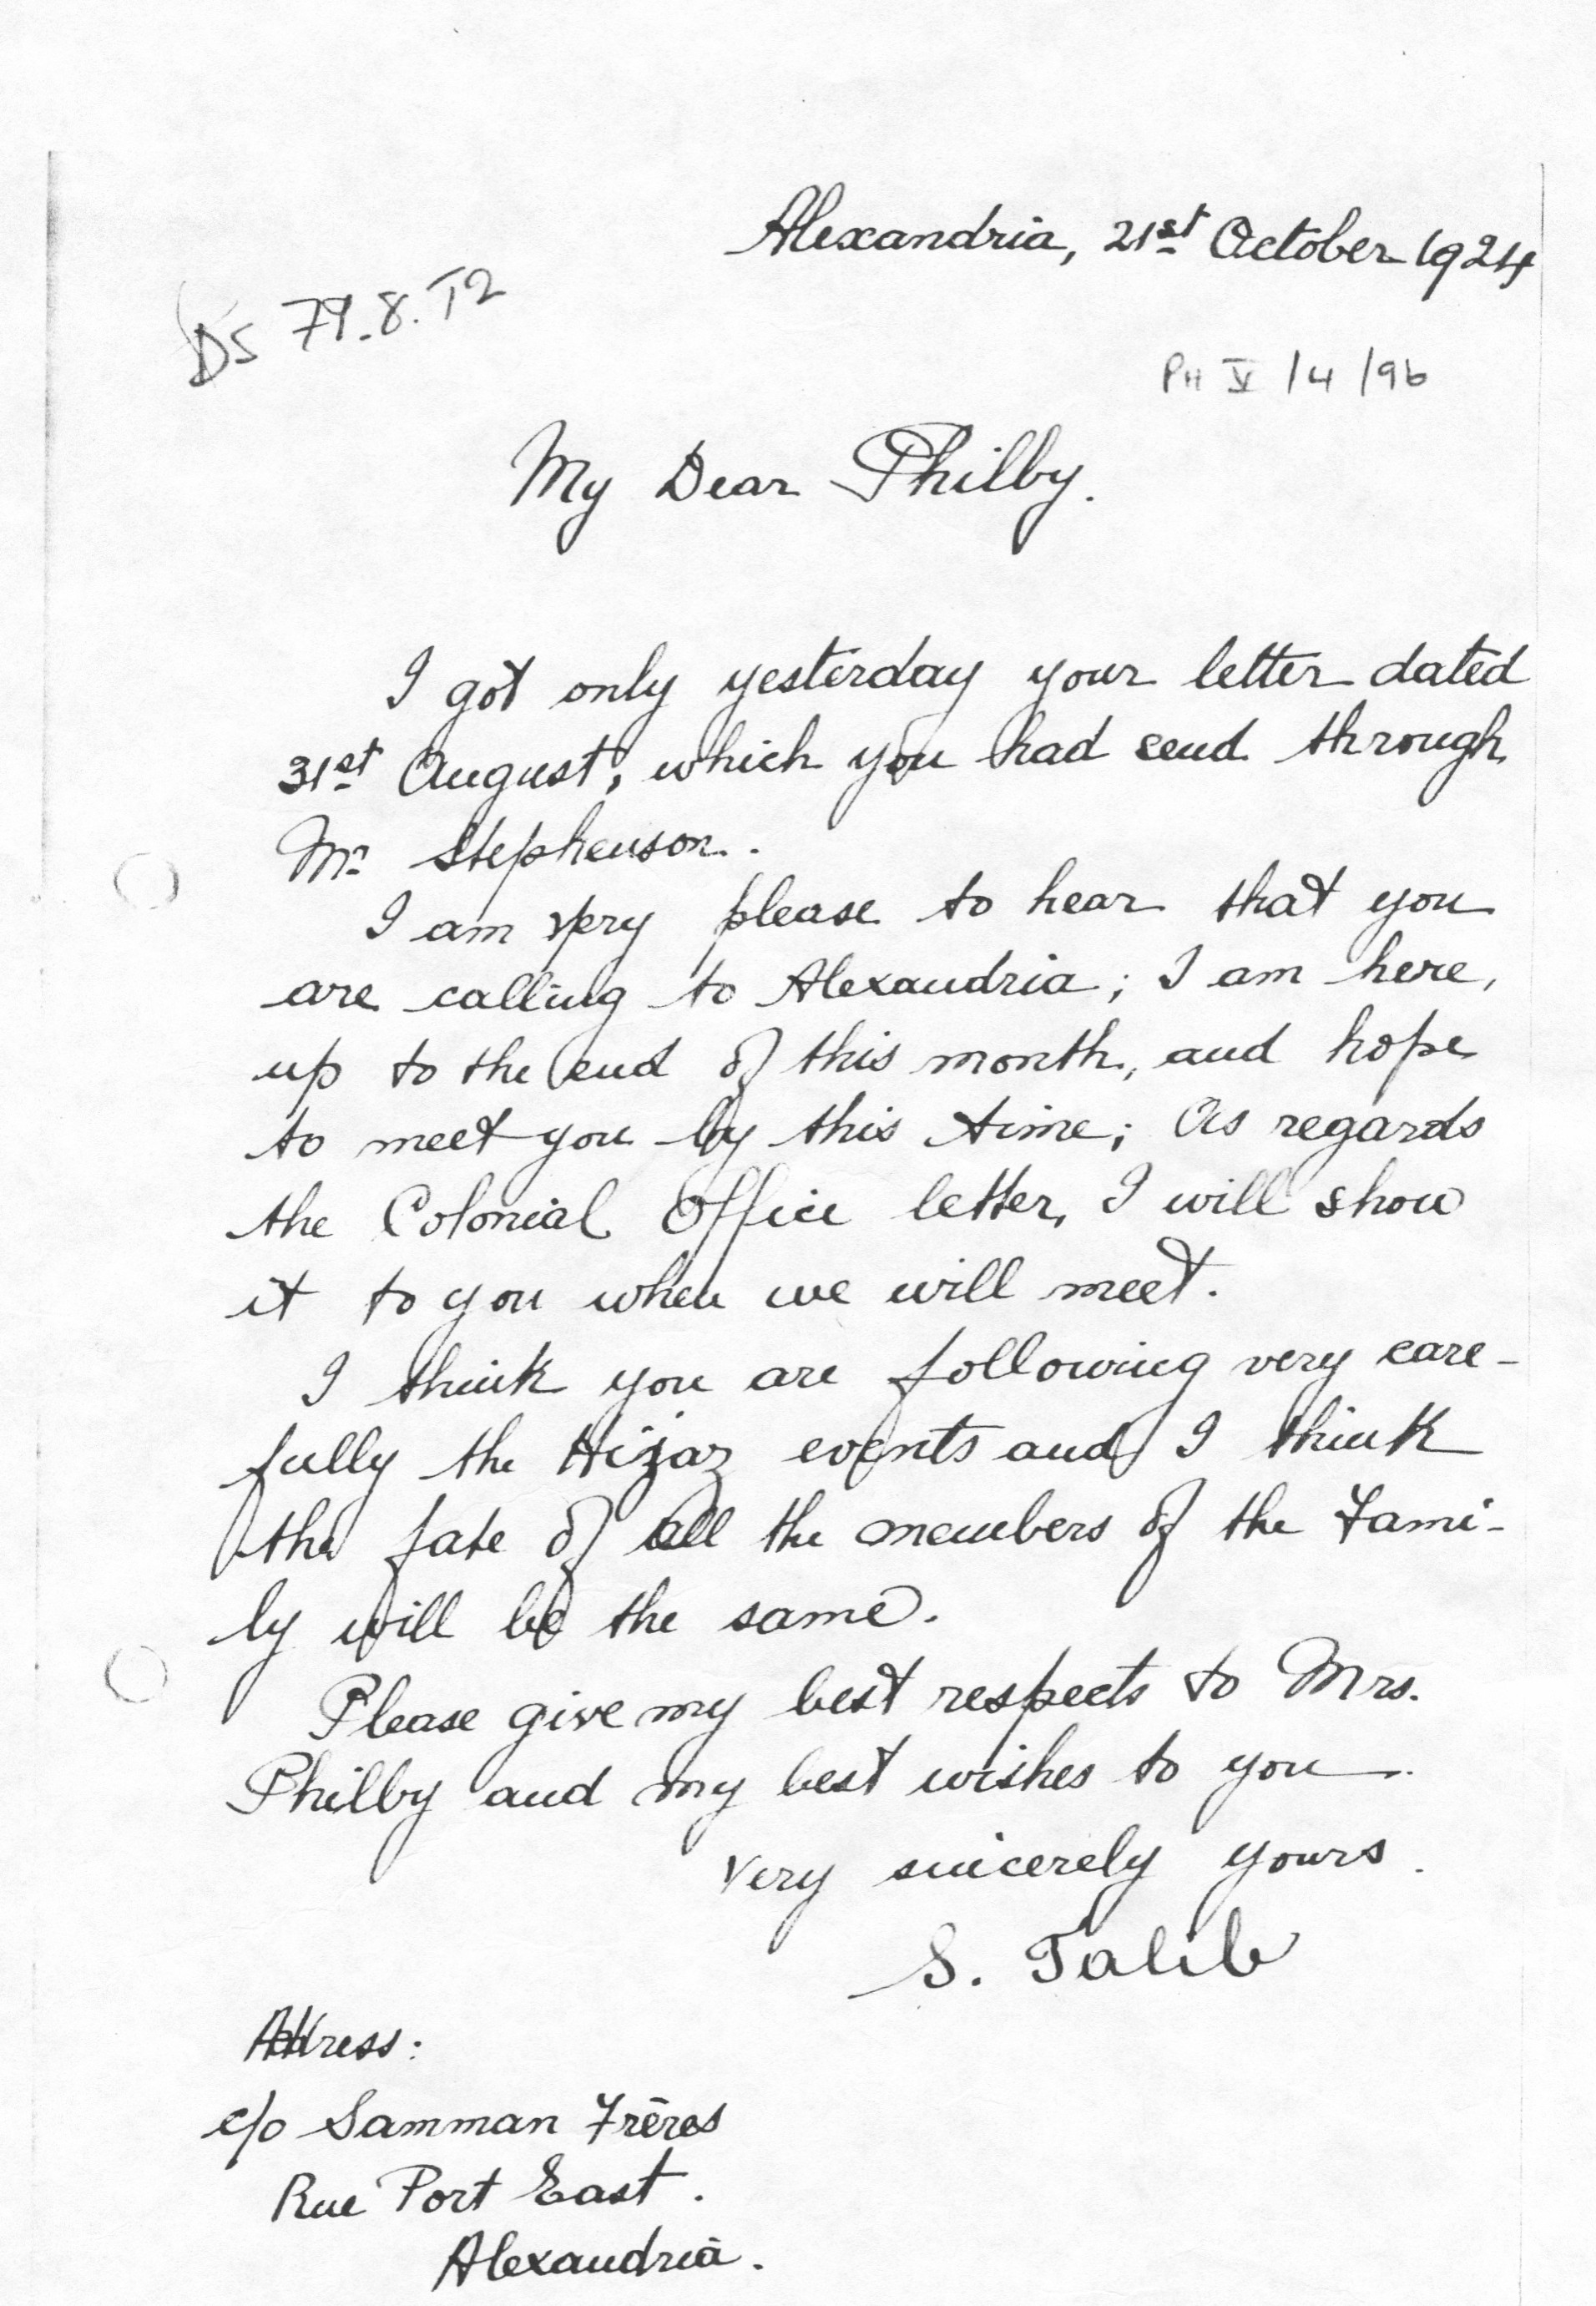 Alexandria, 21st October 1924
DS 79.8.T2
PH V /4/96
My Dear Philby.
I got only yesterday your letter dated
31st August, which you had send through
Mr Stephenson.
I am very please to hear that you
are calling to Alexandria; I am here,
up to the end of this month, and hope
to meet you by this time; As regards
the Colonial Office letter, I will show
it to you when we will meet.
I think you are following very care-
fully the Hijaz events and I think
the fate of all the members of the Fami-
ly will be the same.
Please give my best respects to Mrs.
Philby and my best wishes to you.
Very sincerely yours.
S. Talib
Address:
c/o Samman Frères
Rue Port East.
Alexandria.